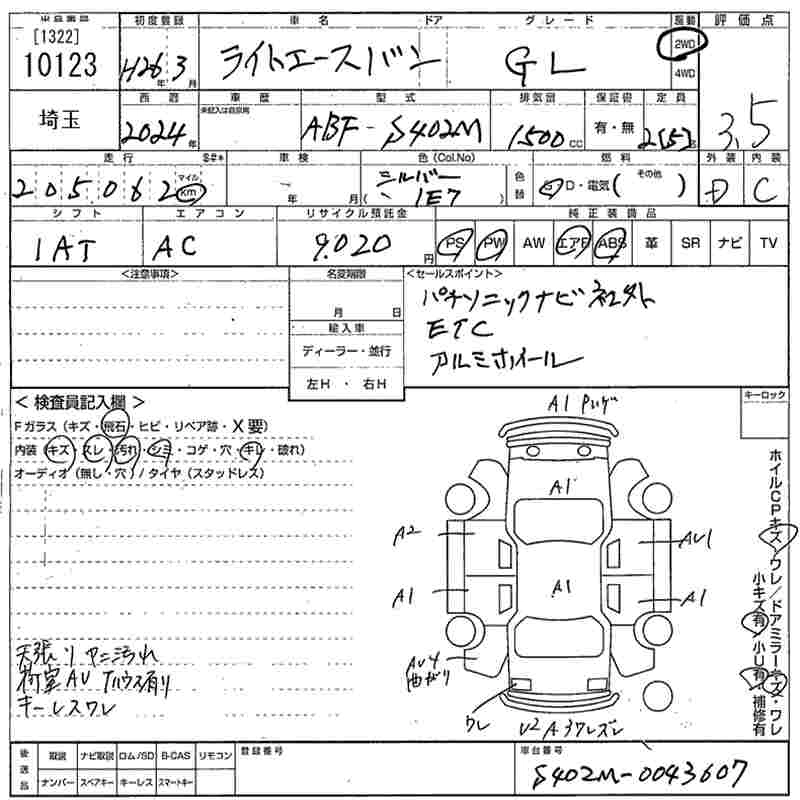 [1322]
10123
初度登録 車名 ドア グレード 駆動 評価点
H26年 3月 ライトエースバン GL 2WD 4WD 3.5
埼玉
西暦 車歴 型式 排気量 保証書 定員
2024年 未記入は自家用 ABF-S402M 1500cc 有・無 2(5)名
走行 車検 色(Col.No) 色替 燃料 外装 内装
205062 マイル km 年 月 シルバー 1E7 G・D・電気( その他 ) D C
シフト エアコン リサイクル預託金 純正装備品
1AT AC 9,020円 PS PW AW エアB ABS 革 SR ナビ TV
<注意事項> 名変期限 <セールスポイント>
月 日
輸入車
ディーラー・並行
左H ・ 右H
パナソニックナビ 社外
ETC
アルミホイール
< 検査員記入欄 > キーロック
Fガラス (キズ・飛石・ヒビ・リペア跡・X要)
内装 (キズ・スレ・汚れ・シミ・コゲ・穴・キレ・破れ)
オーディオ (無し・穴) / タイヤ (スタッドレス)
A1
A1
A2 AU1
A1 A1 A1
AU4 曲がり
ワレ
ホイルCPキズ・ワレ/ドアミラーキズ・ワレ
小キズ有/小U有・補修有
天張り ヤニ汚れ
荷室AU
キーレスワレ
後送品 取説 ナビ取説 ロム/SD B-CAS リモコン 登録番号 車台番号
ナンバー スペアキー キーレス スマートキー S402M-0043607